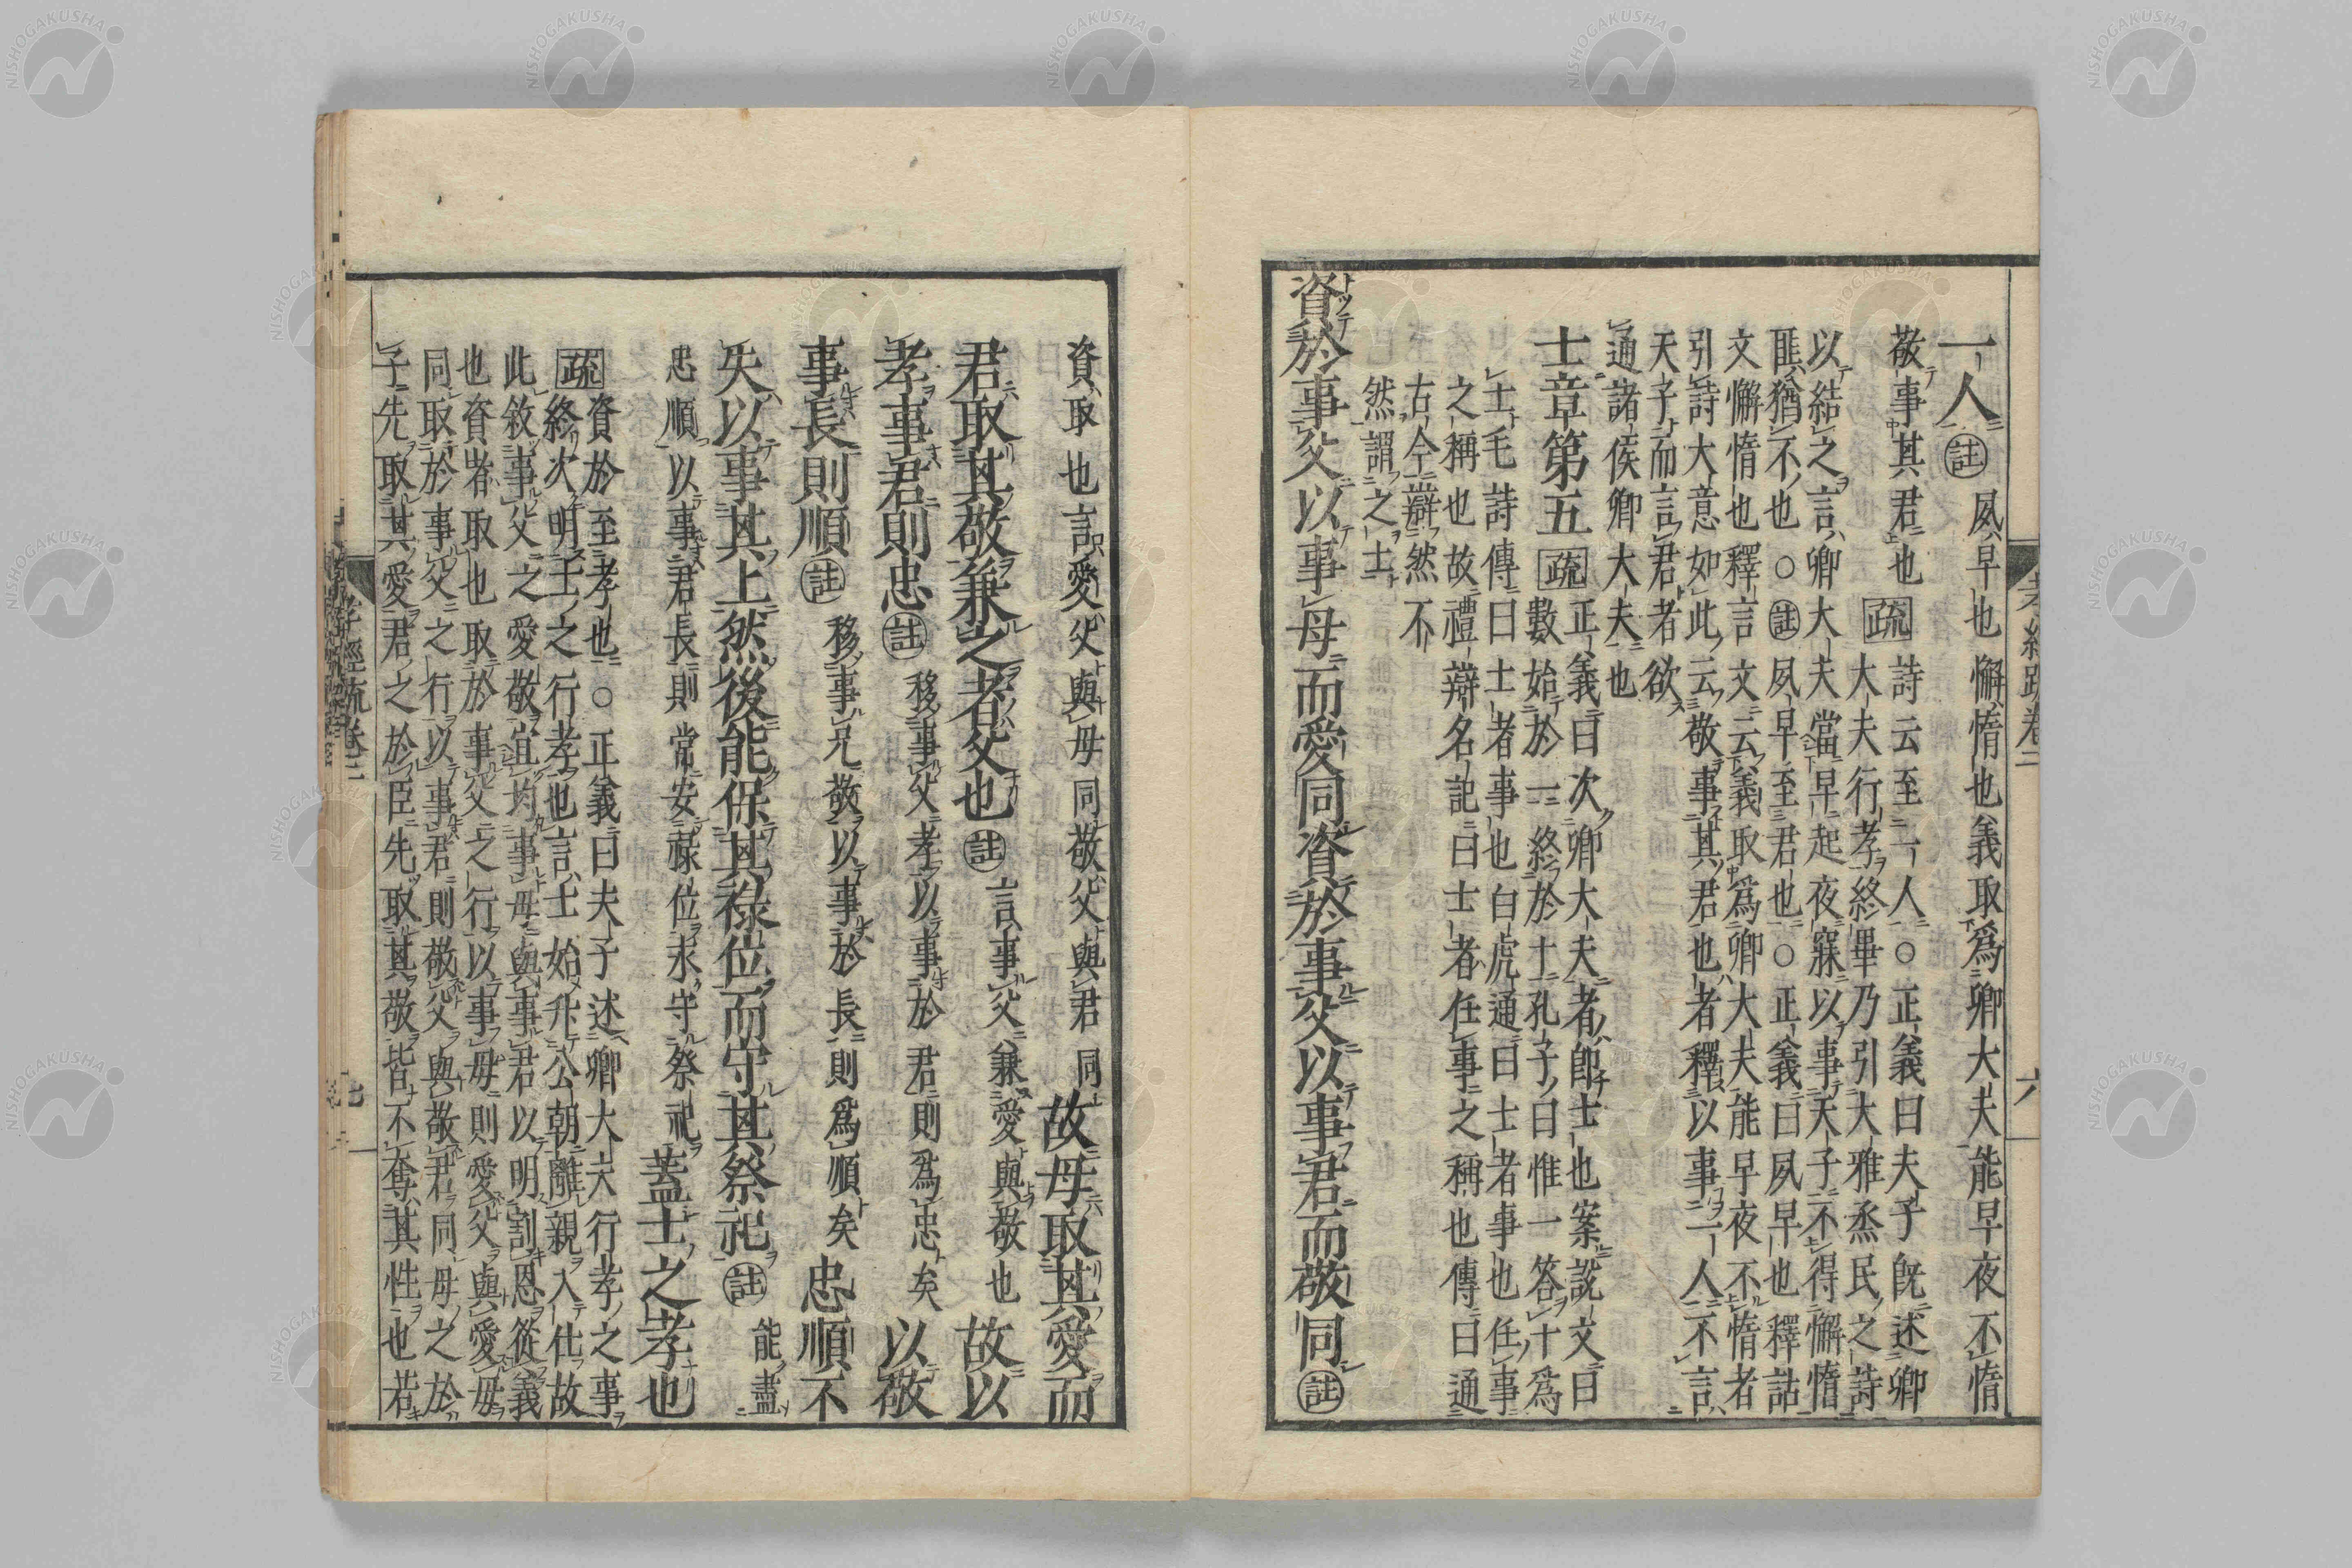 一人註夙早也懈惰也義取爲卿大夫能早夜不惰
敬事其君也疏詩云至一人○正義曰夫子既述卿
大夫行孝終畢乃引大雅烝民之詩
以結之言卿大夫當早起夜寐以事天子不得懈惰
匪猶不也○註夙早至君也○正義曰夙早也釋詁
文懈惰也釋言文云義取爲卿大夫能早夜不惰者
引詩大意如此云敬事其君也者釋以事一人不言
天子而言君者欲
通諸侯卿大夫也
士章第五疏正義曰次卿大夫者即士也案說文曰
數始於一終於十孔子曰惟一答十爲
士毛詩傳曰士者事也白虎通曰士者事也任事
之稱也故禮辯名記曰士者任事之稱也傳曰通
古今辯然不
然謂之士
資於事父以事母而愛同資於事父以事君而敬同註
資取也言愛父與母同敬父與君同故母取其愛而
君取其敬兼之者父也註言事父兼愛與敬也故以
孝事君則忠註移事父孝以事於君則爲忠矣以敬
事長則順註移事兄敬以事於長則爲順矣忠順不
失以事其上然後能保其祿位而守其祭祀註能盡
忠順以事君長則常安祿位永守祭祀蓋士之孝也
疏資於至孝也○正義曰夫子述卿大夫行孝之事
終次明士之行孝也言士始升公朝離親入仕故
此敘事父之愛敬宜均事母與事君以明割恩從義
也資者取也取於事父之行以事母則愛父與愛母
同取於事父之行以事君則敬父與敬君同母之於
子先取其愛君之於臣先取其敬皆不奪其性也若
孝經疏卷二
六
孝經疏卷二
七
NISHOGAKUSHA